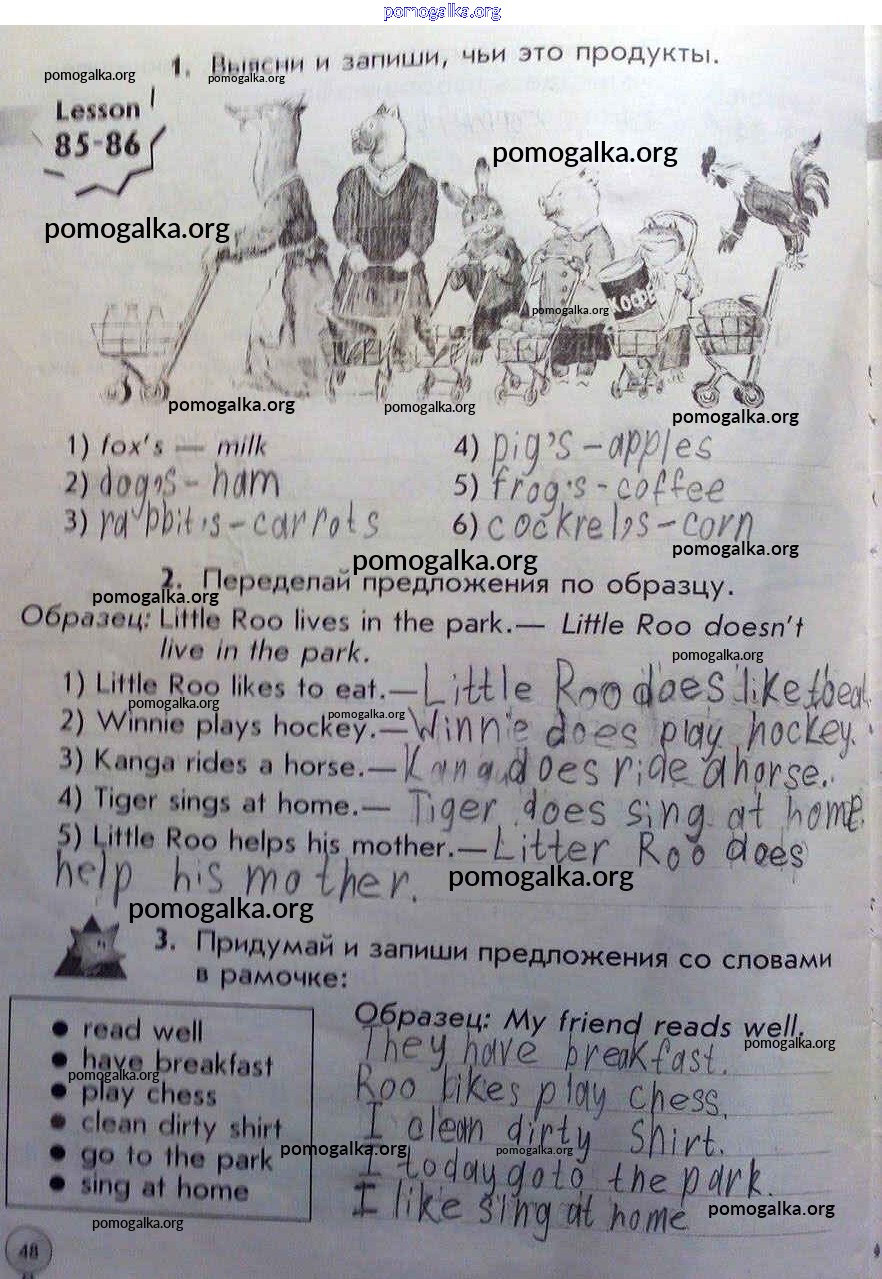 pomogalka.org
1. Выясни и запиши, чьи это продукты.
pomogalka.org
pomogalka.org
Lesson
85-86
pomogalka.org
pomogalka.org
КОФЕ
pomogalka.org
pomogalka.org
pomogalka.org
pomogalka.org
1) fox's — milk
4) pig's - apples
2) dog's - ham
5) frog's - coffee
3) rabbit's - carrots
6) cockrel's - corn
pomogalka.org
pomogalka.org
2. Переделай предложения по образцу.
pomogalka.org
Образец: Little Roo lives in the park. — Little Roo doesn't
live in the park.
pomogalka.org
1) Little Roo likes to eat. — Little Roo does like
pomogalka.org
pomogalka.org
2) Winnie plays hockey. — Winnie does play hockey.
3) Kanga rides a horse. — Kana does ride a horse.
4) Tiger sings at home. — Tiger does sing at home.
5) Little Roo helps his mother. — Litter Roo does
help his mother.
pomogalka.org
pomogalka.org
3. Придумай и запиши предложения со словами
в рамочке:
Образец: My friend reads well.
• read well
They have breakfast.
pomogalka.org
• have breakfast
pomogalka.org
Roo likes play chess.
• play chess
I clean dirty shirt.
• clean dirty shirt
pomogalka.org
pomogalka.org
I today go to the park.
• go to the park
I like sing at home
• sing at home
pomogalka.org
pomogalka.org
48